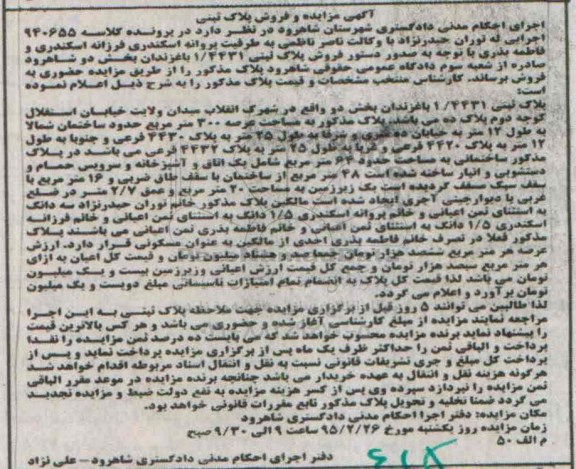 آگهی مزایده و فروش پلاک ثبتی
اجرای احکام مدنی دادگستری شهرستان شاهرود در نظر دارد در پرونده کلاسه ۹۴۰۶۵۵
اجرایی له توران حیدرنژاد با وکالت ناصر ناظمی به طرفیت پروانه اسکندری فرزانه اسکندری و
فاطمه بذری با توجه به صدور دستور فروش پلاک ثبتی ۱/۴۴۳۱ باغزندان بخش دو شاهرود
صادره از شعبه سوم دادگاه عمومی حقوقی شاهرود پلاک مذکور را از طریق مزایده حضوری به
فروش برساند. کارشناس منتخب مشخصات و قیمت پلاک مذکور را به شرح ذیل اعلام نموده
است:
پلاک ثبتی ۱/۴۴۳۱ باغزندان بخش دو واقع در شهرک انقلاب میدان ولایت خیابان استقلال
کوچه دوم پلاک ده می باشد. پلاک مذکور به مساحت عرصه ۳۰۰ متر مربع حدود ساختمان شمالا
به طول ۱۲ متر به خیابان ده متری و شرقا به طول ۲۵ متر به پلاک ۴۴۳۰ فرعی و جنوبا به طول
۱۲ متر به پلاک ۴۴۲۰ فرعی و غربا به طول ۲۵ متر به پلاک ۴۴۳۲ فرعی می باشد در پلاک
مذکور ساختمانی به مساحت حدود ۶۴ متر مربع شامل یک اتاق و آشپزخانه و سرویس حمام و
دستشویی و انبار ساخته شده است ۴۸ متر مربع از ساختمان با سقف طاق ضربی و ۱۶ متر مربع با
سقف سبک مسقف گردیده است یک زیرزمین به مساحت ۲۰ متر مربع و عمق ۲/۷ متر در ضلع
غربی با دیوارچینی آجری ایجاد شده است مالکین پلاک مذکور خانم توران حیدرنژاد سه دانگ
به استثنای ثمن اعیانی و خانم پروانه اسکندری ۱/۵ دانگ به استثنای ثمن اعیانی و خانم فرزانه
اسکندری ۱/۵ دانگ به استثنای ثمن اعیانی و خانم فاطمه بذری ثمن اعیانی می باشند پلاک
مذکور فعلا در تصرف خانم فاطمه بذری احدی از مالکین به عنوان مسکونی قرار دارد. ارزش
عرصه هر متر مربع ششصد هزار تومان جمعا صد و هشتاد میلیون تومان و قیمت کل اعیان به ازای
هر متر مربع سیصد هزار تومان و جمع کل قیمت ارزش اعیانی وزیرزمین بیست و یک میلیون
تومان می باشد لذا قیمت کل پلاک به انضمام تمام امتیازات تاسیساتی مبلغ دویست و یک میلیون
تومان برآورد و اعلام می گردد.
لذا طالبین می توانند ۵ روز قبل از برگزاری مزایده جهت ملاحظه پلاک ثبتی به این اجرا
مراجعه نمایند مزایده از مبلغ کارشناسی آغاز شده و حضوری می باشد و هر کس بالاترین قیمت
را پیشنهاد نماید برنده مزایده محسوب خواهد شد که می بایست ده درصد ثمن مزایده را نقدا
پرداخت و الباقی ثمن را حداکثر ظرف یک ماه پس از برگزاری مزایده پرداخت نماید و پس از
پرداخت کل مبلغ و جری تشریفات قانونی نسبت به نقل و انتقال اسناد مربوطه اقدام خواهد شد
هرگونه هزینه نقل و انتقال به عهده خریدار می باشد چنانچه برنده مزایده در موعد مقرر الباقی
ثمن مزایده را نپردازد سپرده وی پس از کسر هزینه مزایده به نفع دولت ضبط و مزایده تجدید
می گردد ضمنا تخلیه و تحویل پلاک مذکور تابع مقررات قانونی خواهد بود.
مکان مزایده: دفتر اجرا احکام مدنی دادگستری شاهرود
زمان مزایده روز یکشنبه مورخ ۹۵/۲/۲۶ ساعت ۹ الی ۹/۳۰ صبح
م الف ۵۰
دفتر اجرای احکام مدنی دادگستری شاهرود – علی نژاد